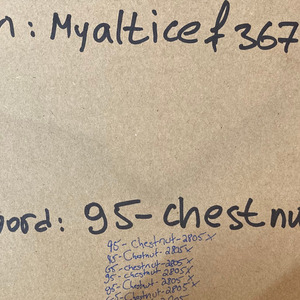 n: Myalticef367
word: 95-chestnu
95-Chestnut-2805x
85-Chestnut-2805x
65-chestnut-2805x
95-chestnut-2805x
95-Chestnut-2805x